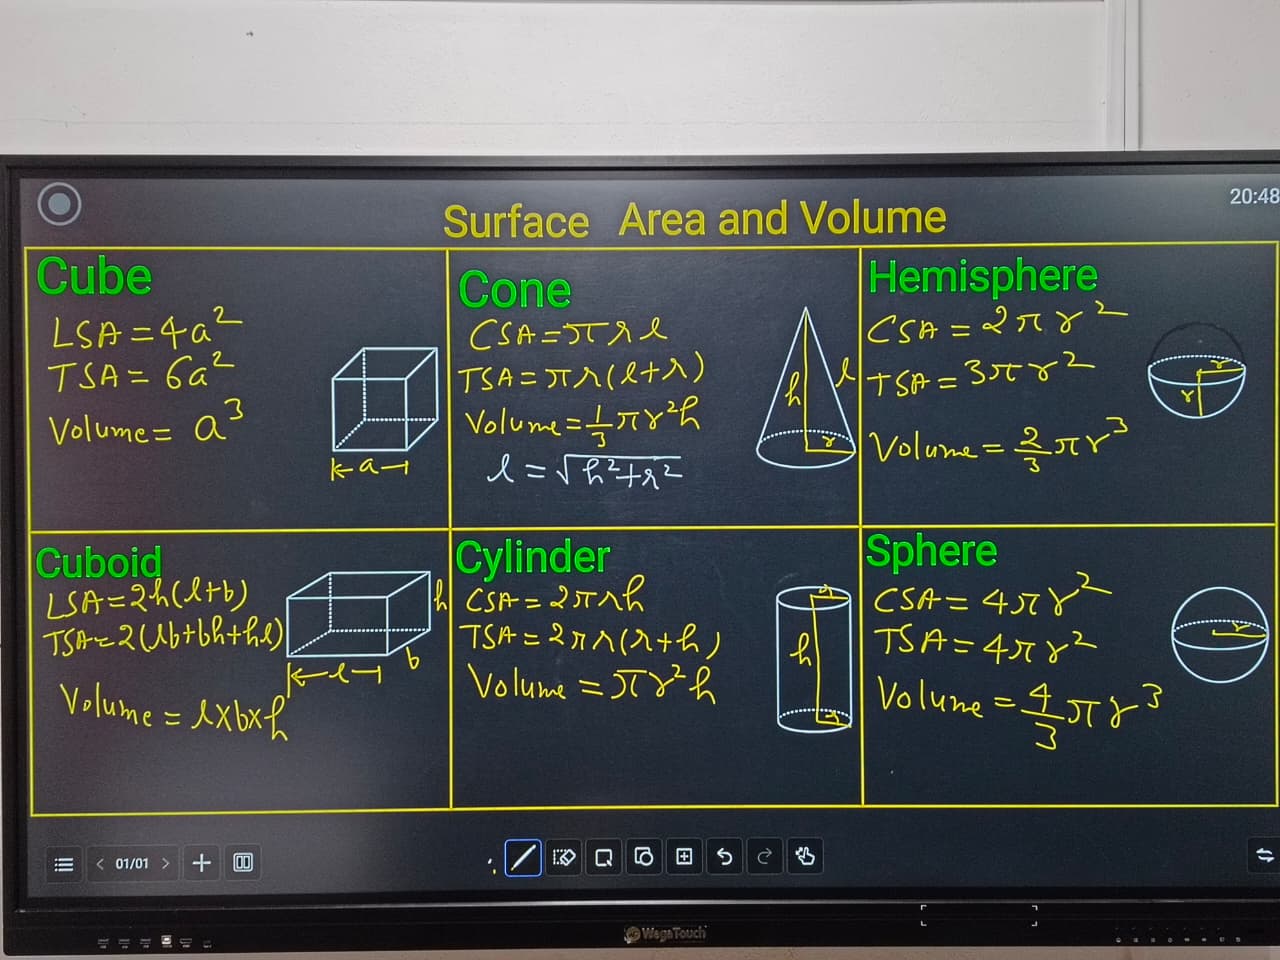 20:48
Surface Area and Volume
Cube
LSA = 4a²
TSA = 6a²
Volume = a³
a
Cone
CSA = πrl
TSA = πr(l+r)
Volume = 1/3 πr²h
l = √h²+r²
h
l
r
Hemisphere
CSA = 2πr²
TSA = 3πr²
Volume = 2/3 πr³
r
r
Cuboid
LSA = 2h(l+b)
TSA = 2(lb+bh+hl)
Volume = l×b×h
h
l
b
Cylinder
CSA = 2πrh
TSA = 2πr(r+h)
Volume = πr²h
r
h
r
Sphere
CSA = 4πr²
TSA = 4πr²
Volume = 4/3 πr³
r
01/01
WegaTouch